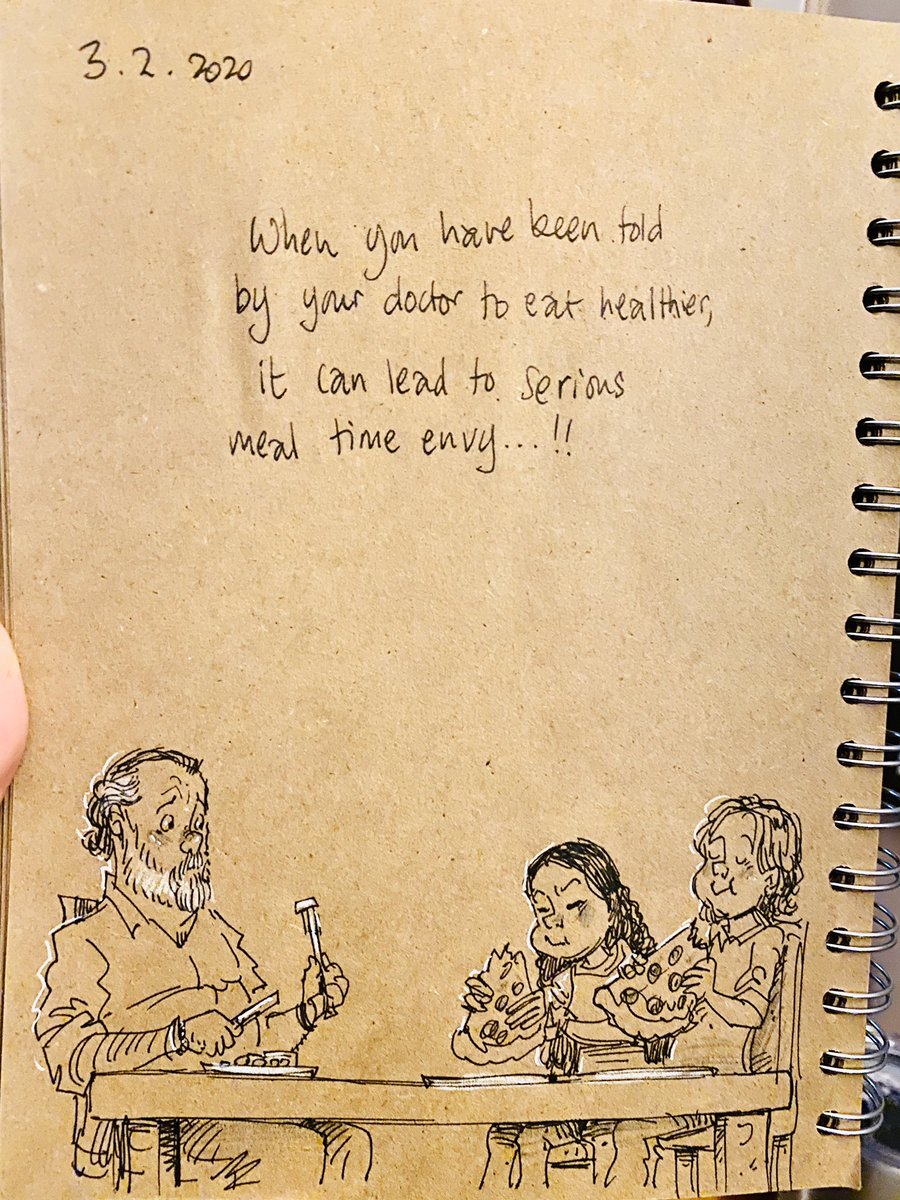 3.2.2020
When you have been told
by your doctor to eat healthier,
it can lead to serious
meal time envy...!!